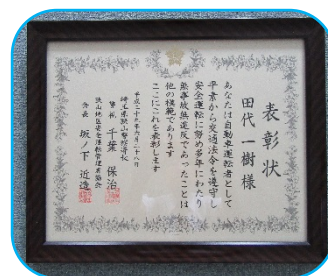 表彰状
田代一樹様
あなたは自動車運転者として
平素から交通法令を遵守し
安全運転に努め多年にわたり
無事故無違反であったことは
他の模範であります
ここにこれを表彰します
平成二十九年六月二十八日
埼玉県狭山警察署長
警視 千葉保治
狭山地区安全運転管理者協会
会長 坂ノ下近造